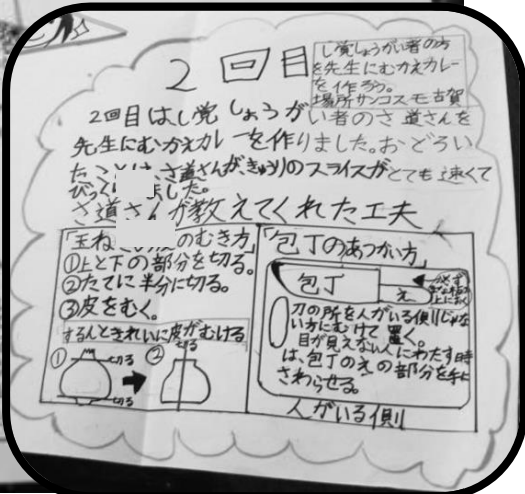 2回目
し覚しょうがい者の方
を先生にむかえカレー
を作ろう。
場所サンコスモ古賀
2回目はし覚しょうがい者のさ道さんを
先生にむかえカレーを作りました。おどろい
たことは、さ道さんがきゅうりのスライスがとても速くて
びっく ました。
さ道さんが教えてくれた工夫
「玉ね のむき方」
①上と下の部分を切る。
②たてに半分に切る。
③皮をむく。
するんときれいに皮がむける
① 切る 切る
② 切る
「包丁のあつかい方」
包丁
え
必ず
上におく
刀の所を人がいる側じゃな
い方にむけて置く。
目が見えない人にわたす時
は、包丁のえの部分を手に
さわらせる。
人がいる側